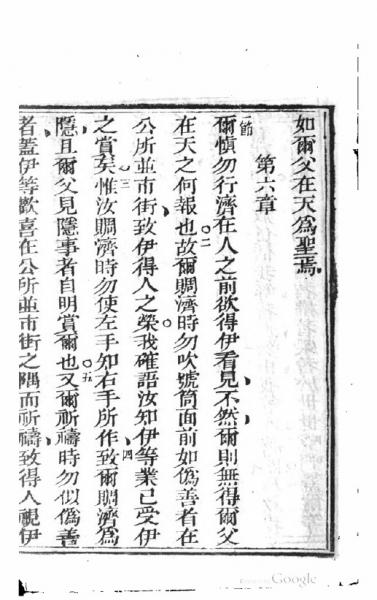 如爾父在天爲聖焉
第六章
一節爾慎勿行濟在人之前欲得伊看見不然爾則無得爾父
在天之何報也○二故爾賙濟時勿吹號筒面前如偽善者在
公所並市街致伊得人之榮我確語汝知伊等業已受伊
之賞矣○三惟汝賙濟時勿使左手知右手所作四致爾賙濟爲
隱且爾父見隱事者自明賞爾也○五又爾祈禱時勿似偽善
者蓋伊等歡喜在公所並市街之隅而祈禱致得人視伊
Google